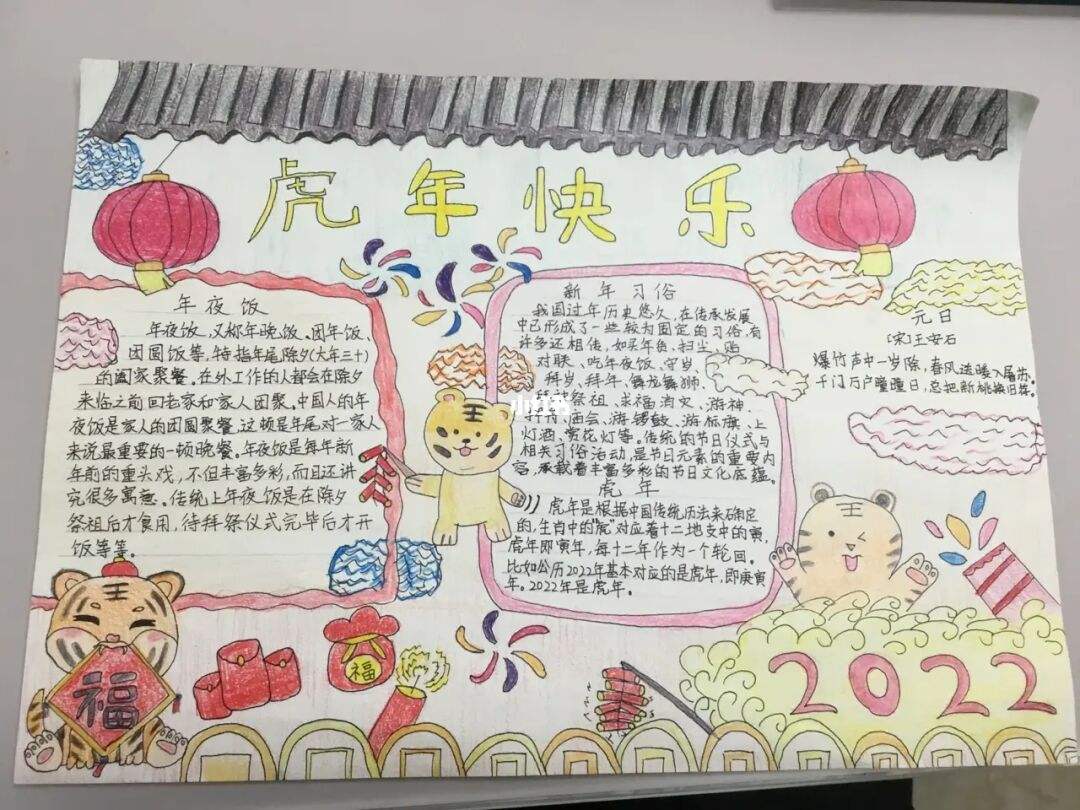 虎年快乐
年夜饭
年夜饭，又称年晚饭、团年饭、
团圆饭等，特指年尾除夕(大年三十)
的阖家聚餐。在外工作的人都会在除夕
来临之前回老家和家人团聚。中国人的年
夜饭是家人的团圆聚餐，这顿是年尾对一家人
来说最重要的一顿晚餐。年夜饭是每年新
年前的重头戏，不但丰富多彩，而且还讲
究很多寓意。传统上年夜饭是在除夕
祭祖后才食用，待拜祭仪式完毕后才开
饭等等。
新年习俗
我国过年历史悠久，在传承发展
中已形成了一些较为固定的习俗，有
许多还相传，如买年货、扫尘、贴
对联、吃年夜饭、守岁、
拜岁、拜年、舞龙舞狮、
祭祖、求福消灾、游神、
庙会、游锣鼓、游标旗、上
灯酒、赏花灯等。传统的节日仪式与
相关习俗活动，是节日元素的重要内
容，承载着丰富多彩的节日文化底蕴。
虎年
虎年是根据中国传统历法来确定
的，生肖中的“虎”对应着十二地支中的寅，
虎年即寅年，每十二年作为一个轮回。
比如公历2022年基本对应的是虎年，即庚寅
年。2022年是虎年。
元日
(宋)王安石
爆竹声中一岁除，春风送暖入屠苏。
千门万户曈曈日，总把新桃换旧符。
小红书
王
王
王
福
福
2022